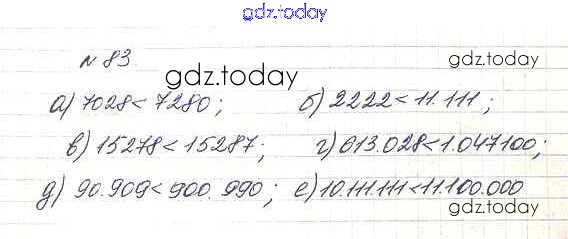 gdz.today
№ 83
gdz.today
gdz.today
а) 7028 < 7280; б) 2222 < 11.111;
в) 15278 < 15287; г) 613.028 < 1.047100;
д) 90.909 < 900.990; е) 10.111.111 < 11.100.000
gdz.today